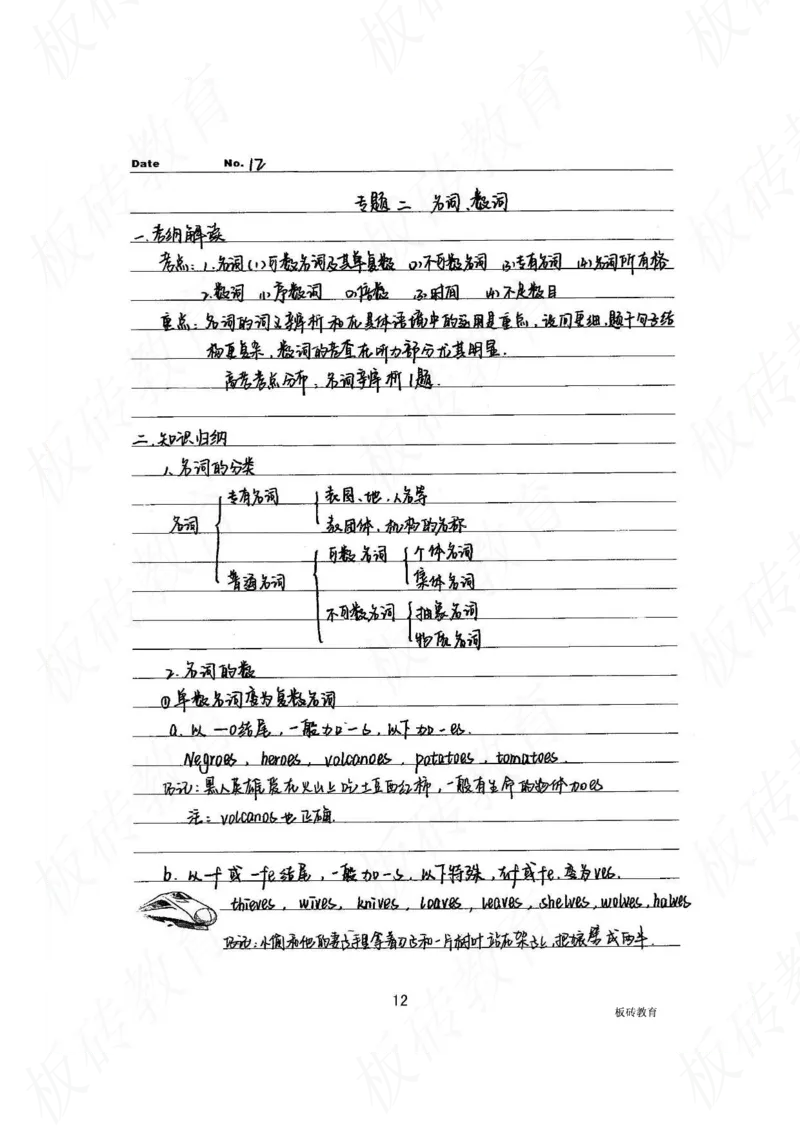 Date No. 12
专题二 名词、数词
一.考纲解读
考点：1.名词(1)可数名词及其单复数 (2)不可数名词 (3)专有名词 (4)名词所有格
2.数词 (1)序数词 (2)倍数 (3)时间 (4)不定数目
重点：名词的词义辨析和在具体语境中的运用是重点，设问更细，题干句子结
构更复杂，数词的考查在听力部分尤其明显.
高考考点分布：名词辨析1题.
二.知识归纳
1.名词的分类
专有名词 表国、地、人名等
名词 表团体、机构的名称
可数名词 个体名词
普通名词 集体名词
不可数名词 抽象名词
物质名词
2.名词的数
①单数名词变为复数名词
a.以-o结尾，一般加-s，以下加-es.
Negroes, heroes, volcanoes, potatoes, tomatoes.
巧记：黑人英雄爱在火山上吃土豆西红柿，一般有生命的物体加es
注：volcanos也正确.
b.以-f或-fe结尾，一般加-s，以下特殊，去f或fe，变为ves.
thieves, wives, knives, loaves, leaves, shelves, wolves, halves
巧记：小偷和他的妻子手里拿着刀子和一片树叶站在架子上，把狼劈成两半.
12
板砖教育
板砖教育